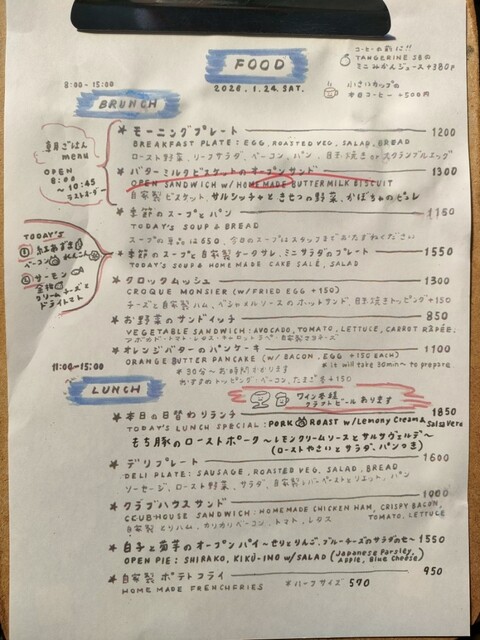 コーヒーの前に!!
TANGERINE JB の
ミニみかんジュース +380円
FOOD
2026.1.24. SAT.
小さいカップの
本日コーヒー +500円
8:00 - 15:00
BRUNCH
朝ごはん
menu
OPEN
8:00
~10:45
ラストオーダー
★ モーニングプレート 1200
BREAKFAST PLATE: EGG, ROASTED VEG, SALAD, BREAD
ロースト野菜、リーフサラダ、ベーコン、パン、目玉焼き or スクランブルエッグ
★ バターミルクビスケットのオープンサンド 1300
OPEN SANDWICH w/ HOME MADE BUTTERMILK BISCUIT
自家製ビスケット、サルシッチャときせつの野菜、かぼちゃのピュレ
★ 季節のスープとパン 1150
TODAY'S SOUP & BREAD
スープの単品は550、今日のスープはスタッフまでおたずねください
TODAY'S
ベーコン
れんこん
サーモン
クリームチーズと
ドライトマト
★ 季節のスープと自家製ケークサレ、ミニサラダのプレート 1550
TODAY'S SOUP & HOME MADE CAKE SALÉ, SALAD
★ クロックムッシュ 1300
CROQUE MONSIER (W/ FRIED EGG +150)
チーズと自家製ハム、ベシャメルソースのホットサンド、目玉焼きトッピング +150
★ お野菜のサンドイッチ 850
VEGETABLE SANDWICH: AVOCADO, TOMATO, LETTUCE, CARROT RÂPÉE,
★ オレンジバターのパンケーキ 1100
ORANGE BUTTER PANCAKE (W/ BACON, EGG +150 EACH)
*30分~お時間かかります
* it will take 30min~ to prepare
おすすめトッピング・ベーコン、たまご各+150
11:00-15:00
LUNCH
ワイン各種
クラフトビールあります
★ 本日の日替わりランチ 1850
TODAY'S LUNCH SPECIAL: PORK ROAST w/ Lemony Cream & Salsa Verde
もち豚のローストポーク~レモンクリームソースとサルサヴェルデ~
(ローストやさいとサラダ、パンつき)
★ デリプレート 1600
DELI PLATE: SAUSAGE, ROASTED VEG, SALAD, BREAD
ソーセージ、ロースト野菜、サラダ、自家製レバーペーストとリエット、パン
★ クラブハウスサンド 1900
CLUBHOUSE SANDWICH: HOMEMADE CHICKEN HAM, CRISPY BACON,
TOMATO, LETTUCE
自家製とりハム、カリカリベーコン、トマト、レタス
★ 白子と菊芋のオープンパイ~せりとりんご、ブルーチーズのサラダのせ~ 1550
OPEN PIE: SHIRAKO, KIKU-INO w/ SALAD (Japanese Parsley, Apple, Blue Cheese)
★ 自家製ポテトフライ 950
HOME MADE FRENCHFRIES
*ハーフサイズ 570